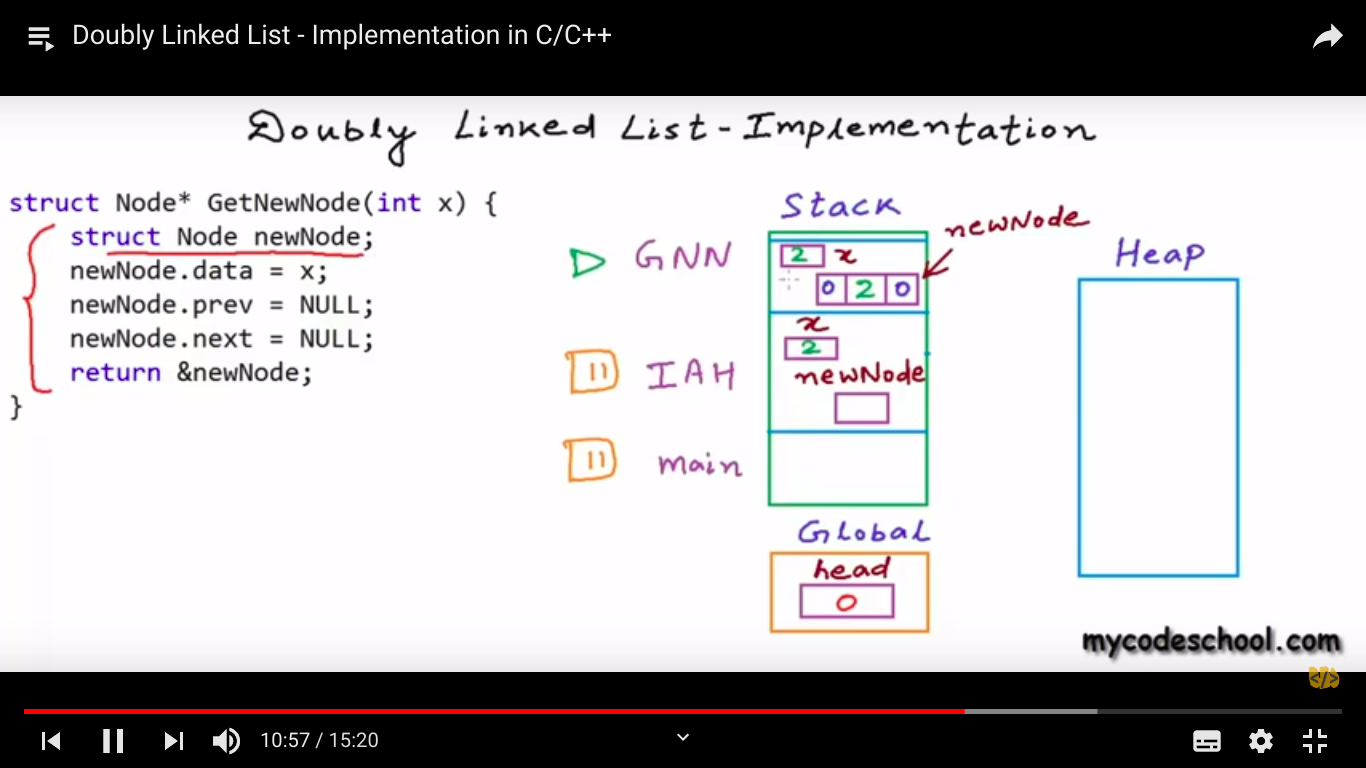 Doubly Linked List - Implementation in C/C++
Doubly Linked List - Implementation
struct Node* GetNewNode(int x) {
struct Node newNode;
newNode.data = x;
newNode.prev = NULL;
newNode.next = NULL;
return &newNode;
}
Stack
newNode
GNN
2 x
0 2 0
x
2
IAH
newNode
main
Global
head
0
Heap
mycodeschool.com
</>
10:57 / 15:20